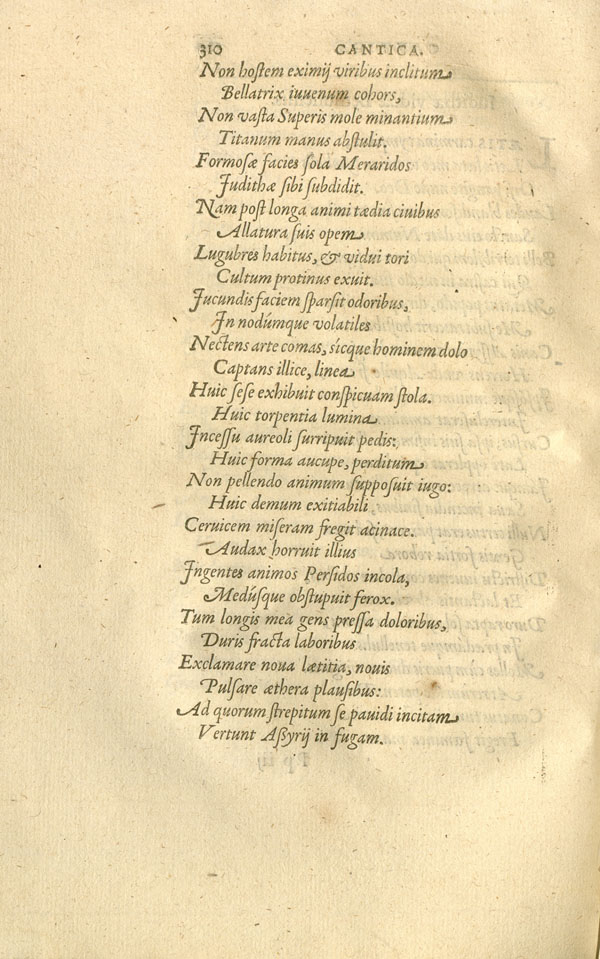 310 CANTICA.
Non hoſtem eximij viribus inclitum
Bellatrix iuuenum cohors,
Non vaſta Superis mole minantium
Titanum manus abſtulit.
Formoſæ facies ſola Meraridos
Judithæ ſibi ſubdidit.
Nam poſt longa animi tædia ciuibus
Allatura ſuis opem
Lugubres habitus, & vidui tori
Cultum protinus exuit.
Jucundis faciem ſparſit odoribus,
In nodúmque volatiles
Nectens arte comas, ſicque hominem dolo
Captans illice, linea
Huic ſeſe exhibuit conſpicuam ſtola.
Huic torpentia lumina
Inceſſu aureoli ſurripuit pedis:
Huic forma aucupe, perditum
Non pellendo animum ſuppoſuit iugo:
Huic demum exitiabili
Ceruicem miſeram fregit acinace.
Audax horruit illius
Ingentes animos Perſidos incola,
Medúſque obſtupuit ferox.
Tum longis mea gens preſſa doloribus,
Duris fracta laboribus
Exclamare noua lætitia, nouis
Pulſare æthera plauſibus:
Ad quorum ſtrepitum ſe pauidi incitam
Vertunt Aſſyrij in fugam.